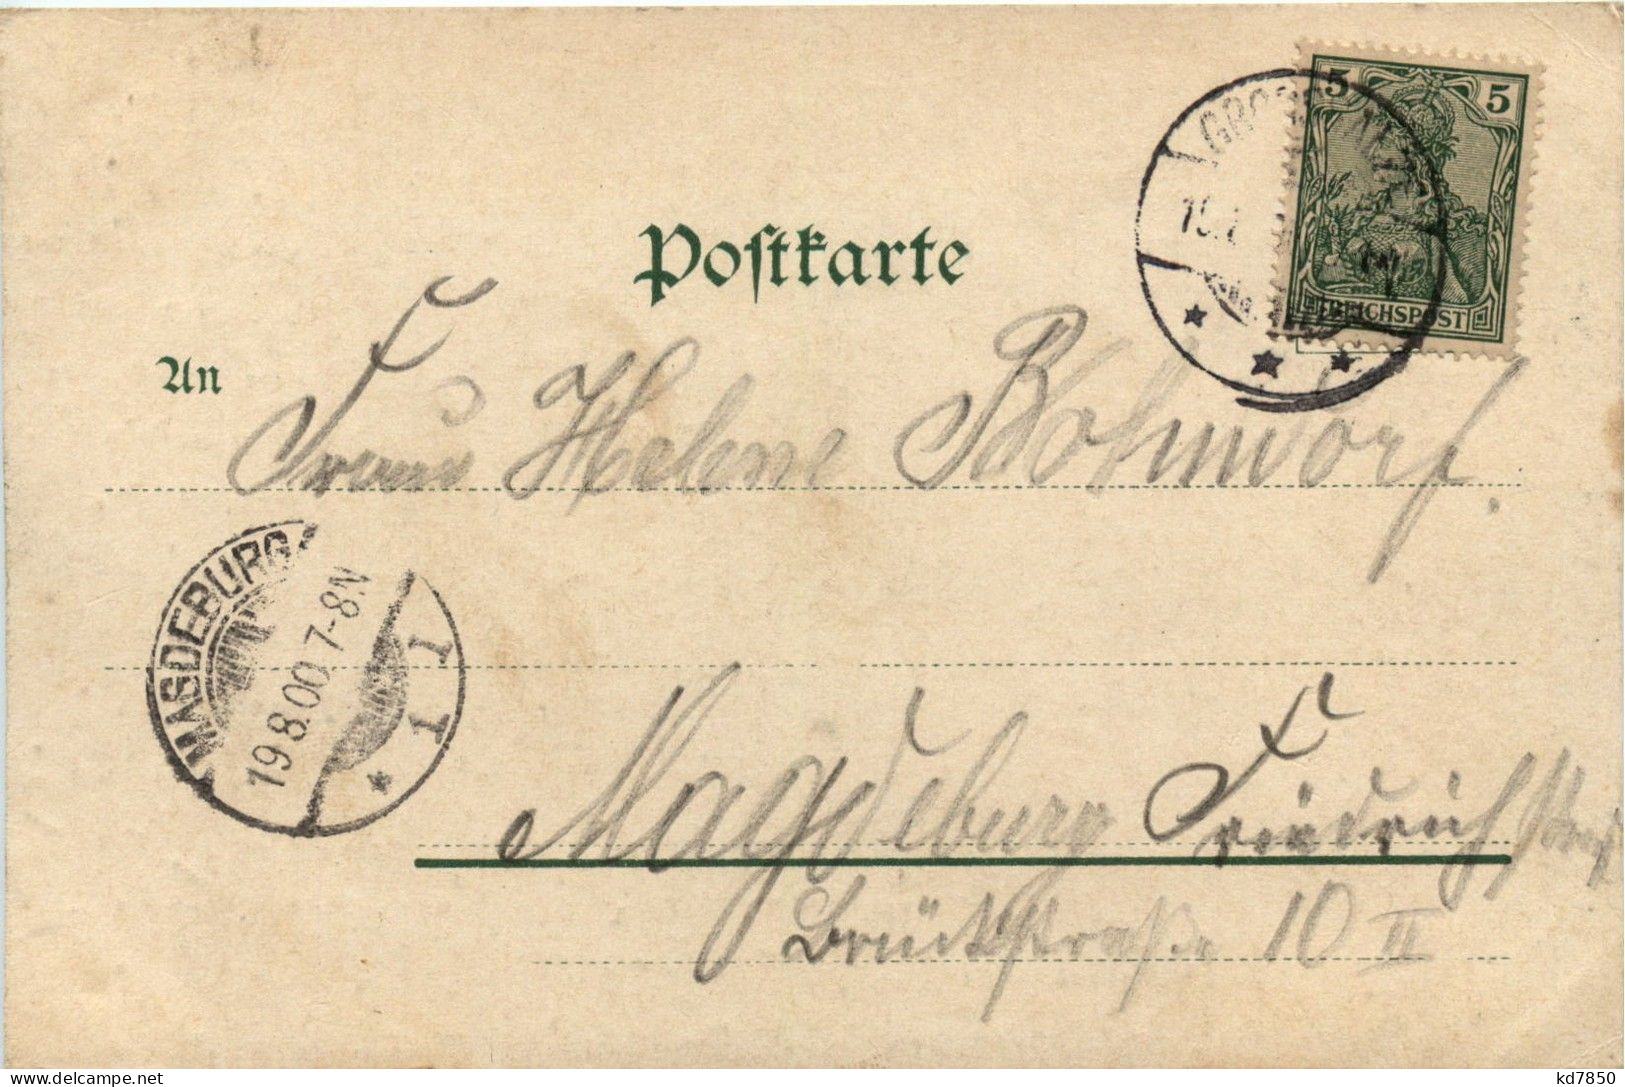 5 5
REICHSPOST
Postkarte
An
Frau Helene Bohndorf.
MAGDEBURG
19.8.00.7-8N
Magdeburg Friedrichstadt
Brückstraße 10 II
delcampe.net
kd7850